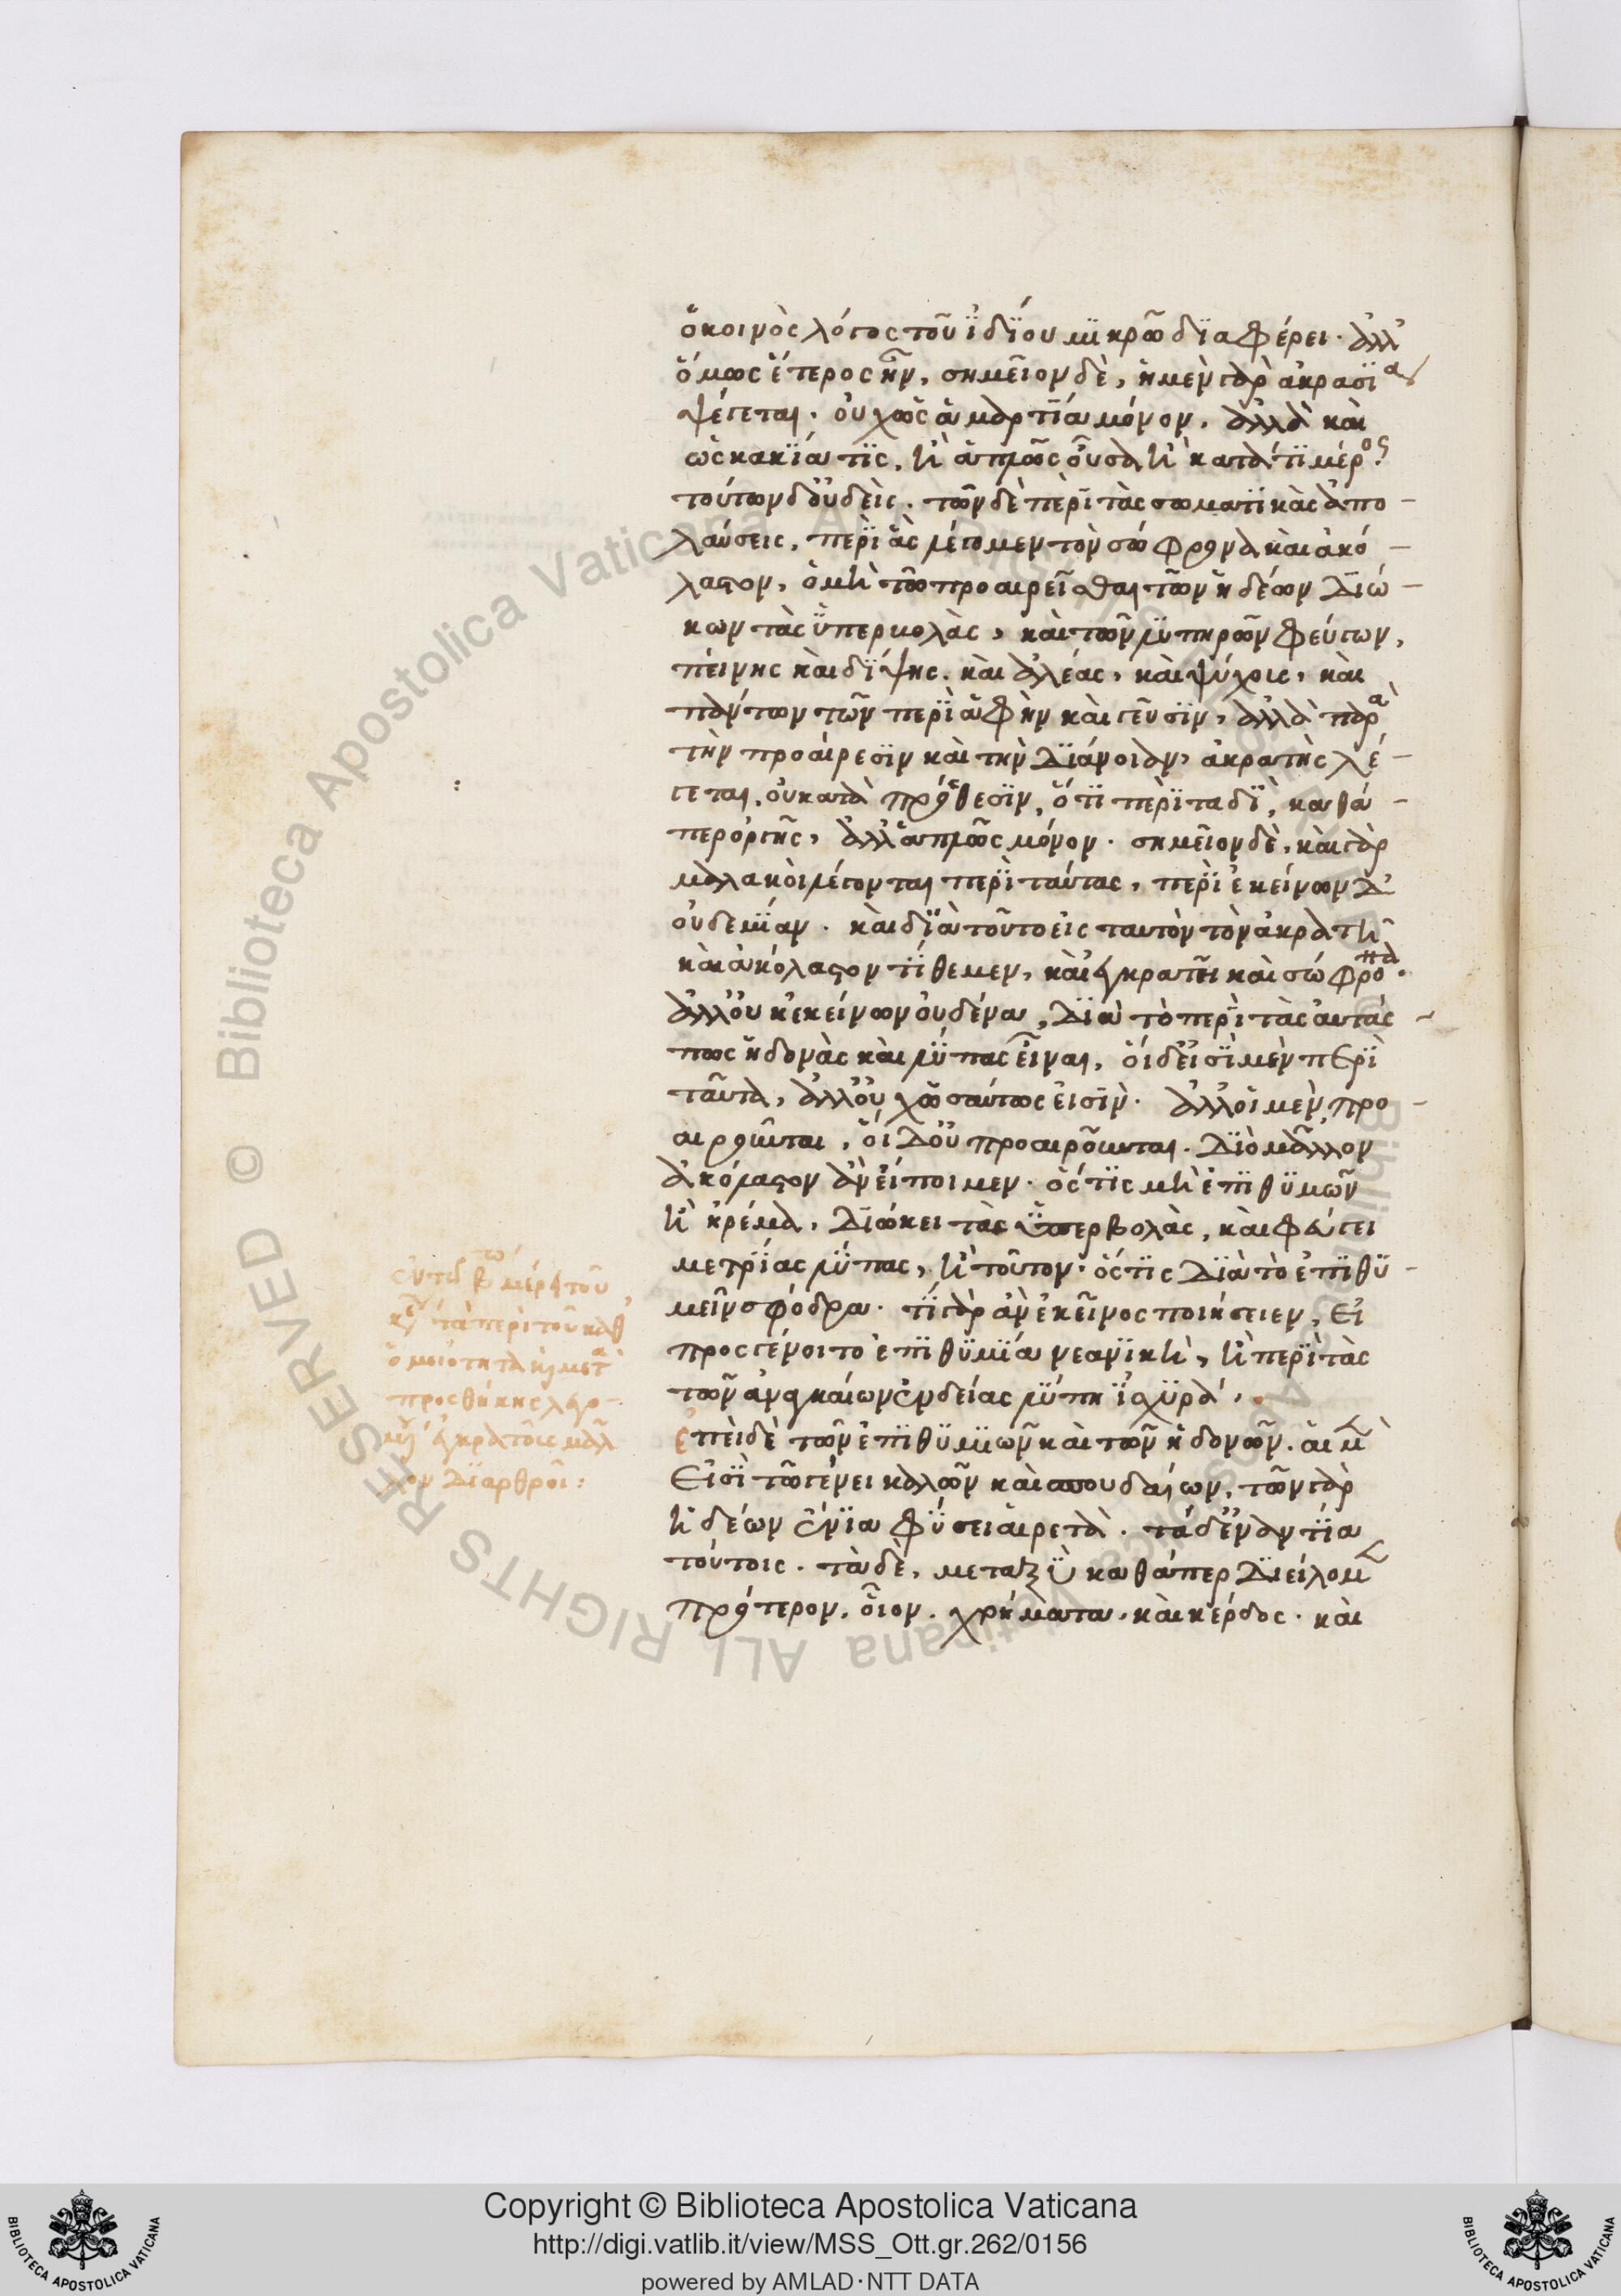 ὁ κοινὸς λόγος τοῦ ἰδίου μικρῶ διαφέρει· ἀλλ'
ὅμως ἕτερος ἦν, σημεῖον δὲ, ἡ μὲν γὰρ ἀκρασία
ψέγεται· οὐχ ὡς ἁμαρτία μόνον, ἀλλὰ καὶ
ὡς κακία τίς, ἢ ἁπλῶς οὖσα ἢ κατά τι μέρος·
τούτων δ' οὐδεὶς· τῶν δὲ περὶ τὰς σωματικὰς ἀπο -
λαύσεις, περὶ ἃς λέγομεν τὸν σώφρονα καὶ ἀκό -
λαστον, ὁ μὴ τῶ προαιρεῖσθαι τῶν ἡδέων διώ -
κων τὰς ὑπερβολὰς, καὶ τῶν λυπηρῶν φεύγων,
πείνης καὶ δίψης. καὶ ἀλέας, καὶ ψύχους, καὶ
πάντων τῶν περὶ ἁφὴν καὶ γεῦσιν, ἀλλὰ παρὰ
τὴν προαίρεσιν καὶ τὴν διάνοιαν, ἀκρατὴς λέ -
γεται, οὐ κατὰ πρόσθεσιν, ὅτι περὶ ταδὶ, καθά -
περ ὀργῆς, ἀλλ' ἁπλῶς μόνον· σημεῖον δὲ, καὶ γὰρ
μαλακοὶ λέγονται περὶ ταύτας, περὶ ἐκείνων δ'
οὐδεμίαν· καὶ διὰ τοῦτο εἰς ταυτὸν τὸν ἀκρατῆ
καὶ ἀκόλαστον τίθεμεν, καὶ ἐγκρατῆ καὶ σώφρονα·
ἀλλ' οὐκ ἐκείνων οὐδένα, διὰ τὸ περὶ τὰς αὐτάς -
πως ἡδονὰς καὶ λύπας εἶναι, οἱ δ' εἰσὶ μὲν περὶ
ταῦτα, ἀλλ' οὐχ ὡσαύτως εἰσὶν· ἀλλ' οἱ μὲν προ -
αιροῦνται, οἱ δ' οὐ προαιροῦνται. διὸ μᾶλλον
ἀκόλαστον ἂν εἴποιμεν· ὅστις μὴ ἐπιθυμῶν
ἢ ἠρέμα, διώκει τὰς ὑπερβολὰς, καὶ φεύγει
μετρίας λύπας, ἢ τοῦτον· ὅστις διὰ τὸ ἐπιθυ -
μεῖν σφόδρα· τί γὰρ ἂν ἐκεῖνος ποιήσειεν, εἰ
προσγένοιτο ἐπιθυμία νεανικὴ, ἢ περὶ τὰς
τῶν ἀναγκαίων ἐνδείας λύπη ἰσχυρά·
ἐπεὶ δὲ τῶν ἐπιθυμιῶν καὶ τῶν ἡδονῶν. αἱ μὲν
εἰσὶ τῶ γένει καλῶν καὶ σπουδαίων, τῶν γὰρ
ἡδέων ἔνια φύσει αἱρετὰ· τὰ δ' ἐναντία
τούτοις· τὰ δὲ, μεταξὺ καθάπερ διείλομεν
πρότερον, οἷον. χρήματα, καὶ κέρδος· καὶ
ἐν τῶ βω μέρει τοῦ
τὰ περὶ τοῦ καθ'
ὁμοιότητα καὶ μετὰ
προσθήκης λεγο -
μένου ἀκρατοῦς μᾶλ
λον διαρθροῖ:
© Biblioteca Apostolica Vaticana ALL RIGHTS RESERVED
Copyright © Biblioteca Apostolica Vaticana
http://digi.vatlib.it/view/MSS_Ott.gr.262/0156
powered by AMLAD·NTT DATA
BIBLIOTECA APOSTOLICA VATICANA
BIBLIOTECA APOSTOLICA VATICANA